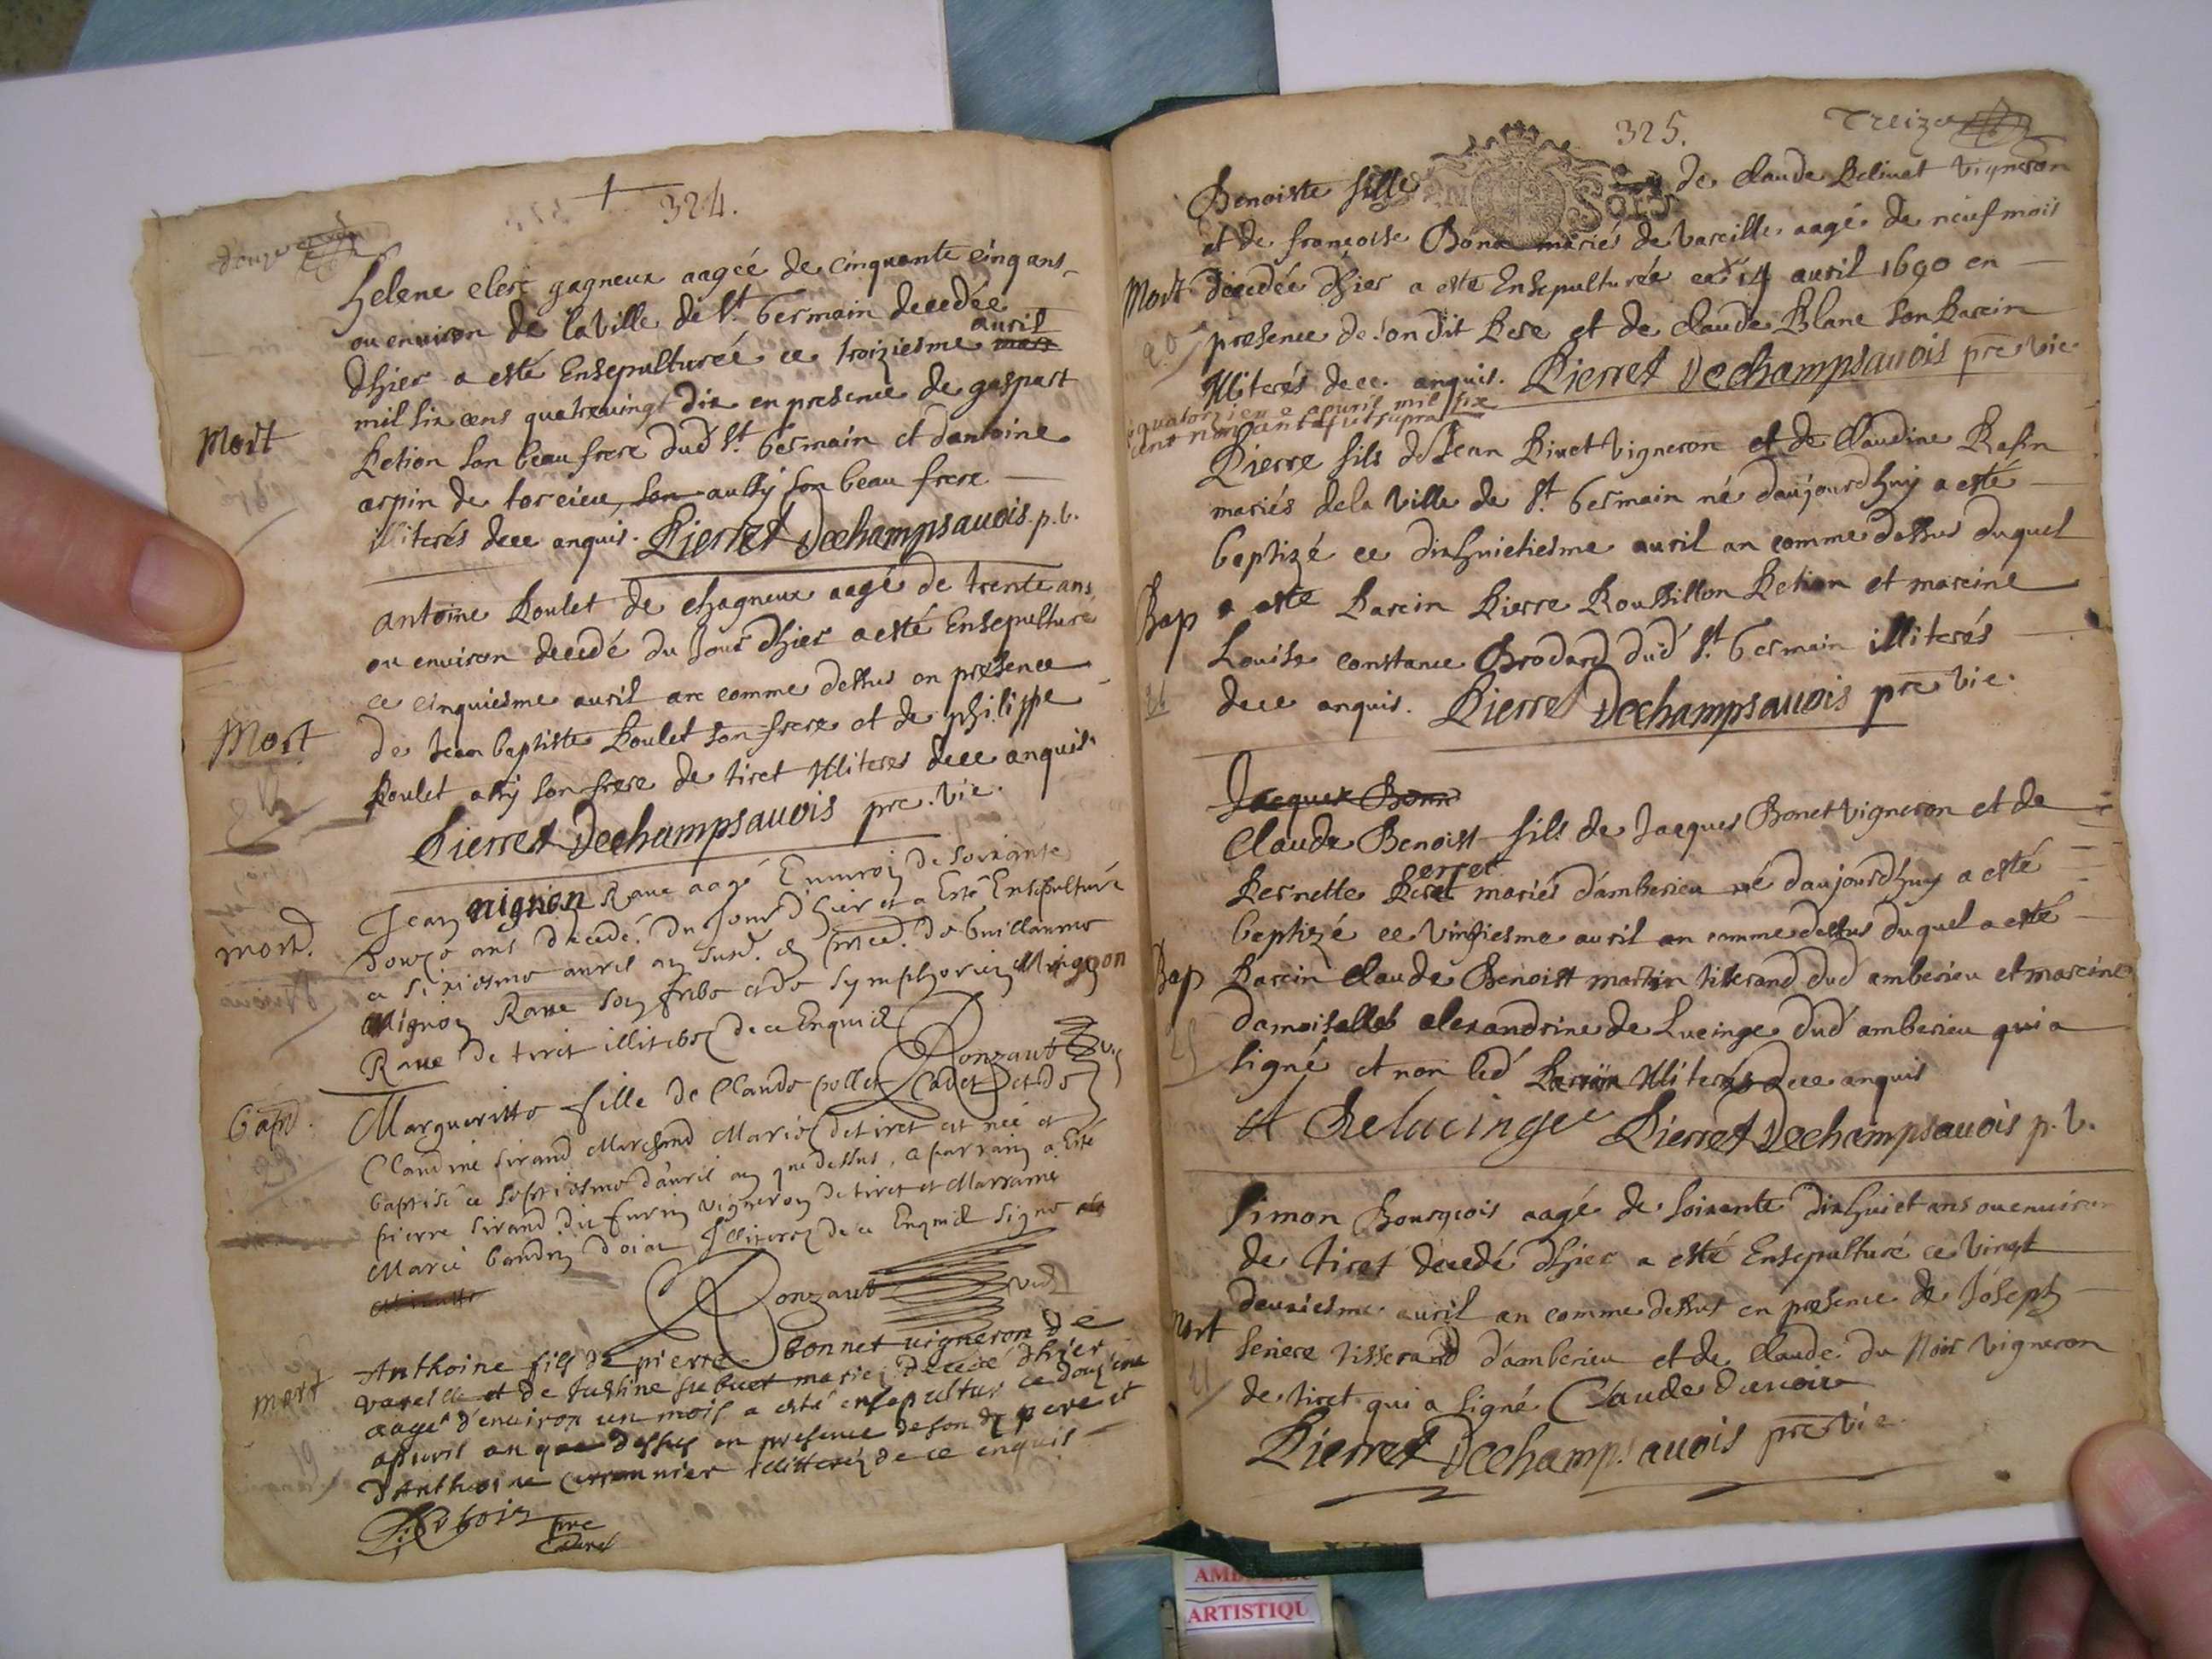 324.
douze
helene clert gagneux aagée de cinquante cinq ans
ou environ de la ville de St. Germain decedée
dhier a esté Ensepulturée ce troiziesme mars avril
mil six cens quatrevingt dix en presence de gaspart
Petion son beau frere dud St. Germain et dantoine
arpin de torcieu son aussy son beau frere
illiterés dece enquis. Pierret Dechampsavois p. v.
Mort
antoine Poulet de chagneux aagé de trente ans
ou environ decedé du Jour dhier a esté Ensepulturé
ce cinquiesme avril an comme dessus en presence
de Jean baptiste Poulet son frere et de philippe
Poulet assy son frere de tiret Illiteres dece enquis
Pierret Dechampsavois pre. vie.
Mort
Jean mignon Rave aagé Environ de soixante
douze ans decedé du Jour d'hier et a Esté Ensepulturé
ce sixiesme avril an susd. en pnce. de Guillaume
Mignon Rave son frere et de Symphorien Mignon
Rave de tiret illiterez de ce Enquis
Ronzault
mort.
Margueritte fille de Claude pollet Cadet et de
Claudine sirand Marchand Mariez de tiret est née et
baptisé ce septiesme d'avril an que dessus, a parrain a Esté
pierre sirand dit furin vigneron de tiret et Marraine
Marie baudin Illiterez de ce Enquis signe
bapt.
Ronzault
Anthoine fils de pierre bonnet vigneron de
vareille et de Justine subuet mariez decedé dhier
aagé d'environ un mois a esté ensepulturé ce douzieme
apvril an que dessus en presence de son pere et
d'Anthoine illitterez de ce enquis
mort
Dubois pre
325.
Treize
Benoiste fille de claude Pelivet vigneron
et de francoise Bona mariés de Vareille aagé de neuf mois
decedée dhier a esté Ensepulturée ce 14 avril 1690 en
presence de sondit Pere et de claude Blanc son Parein
Illiterés dece enquis. Pierret Dechampsavois pre vie.
Mort
quatorzieme apvril mil six
cent nonante ut supra
Pierre fils de Jean Pivet vigneron et de Claudine Rafin
mariés dela ville de St. Germain né daujourdhuy a esté
baptizé ce dixhuictiesme avril an comme dessus duquel
a esté Parein Pierre Roussillon Petion et mareine
Louise constance Brodard dud St. Germain illiterés
dece enquis. Pierret Dechampsavois pre vie.
Bap
Jacques Bonn
Claude Benoist fils de Jacques Bonet vigneron et de
Pernette Perret mariés d'amberieu né daujourdhuy a esté
baptizé ce vintiesme avril an comme dessus duquel a esté
Parein claude Benoist martin tisserand dud amberieu et mareine
damoiselle alexandrine de Lucinge dud amberieu qui a
signé et non led Parein Illiterés dece enquis
A Delucinge Pierret Dechampsavois p. v.
Bap
simon Bourgeois aagé de soixante dixhuict ans ou environ
de tiret decedé dhier a esté Ensepulturé ce vingt
deuxiesme avril an comme dessus en presence de Joseph
seriere tisserand d'amberieu et de claude du Noir vigneron
de tiret qui a signé Claude dunoir
Pierret Dechampsavois pre vie
Mort
ARTISTIQU